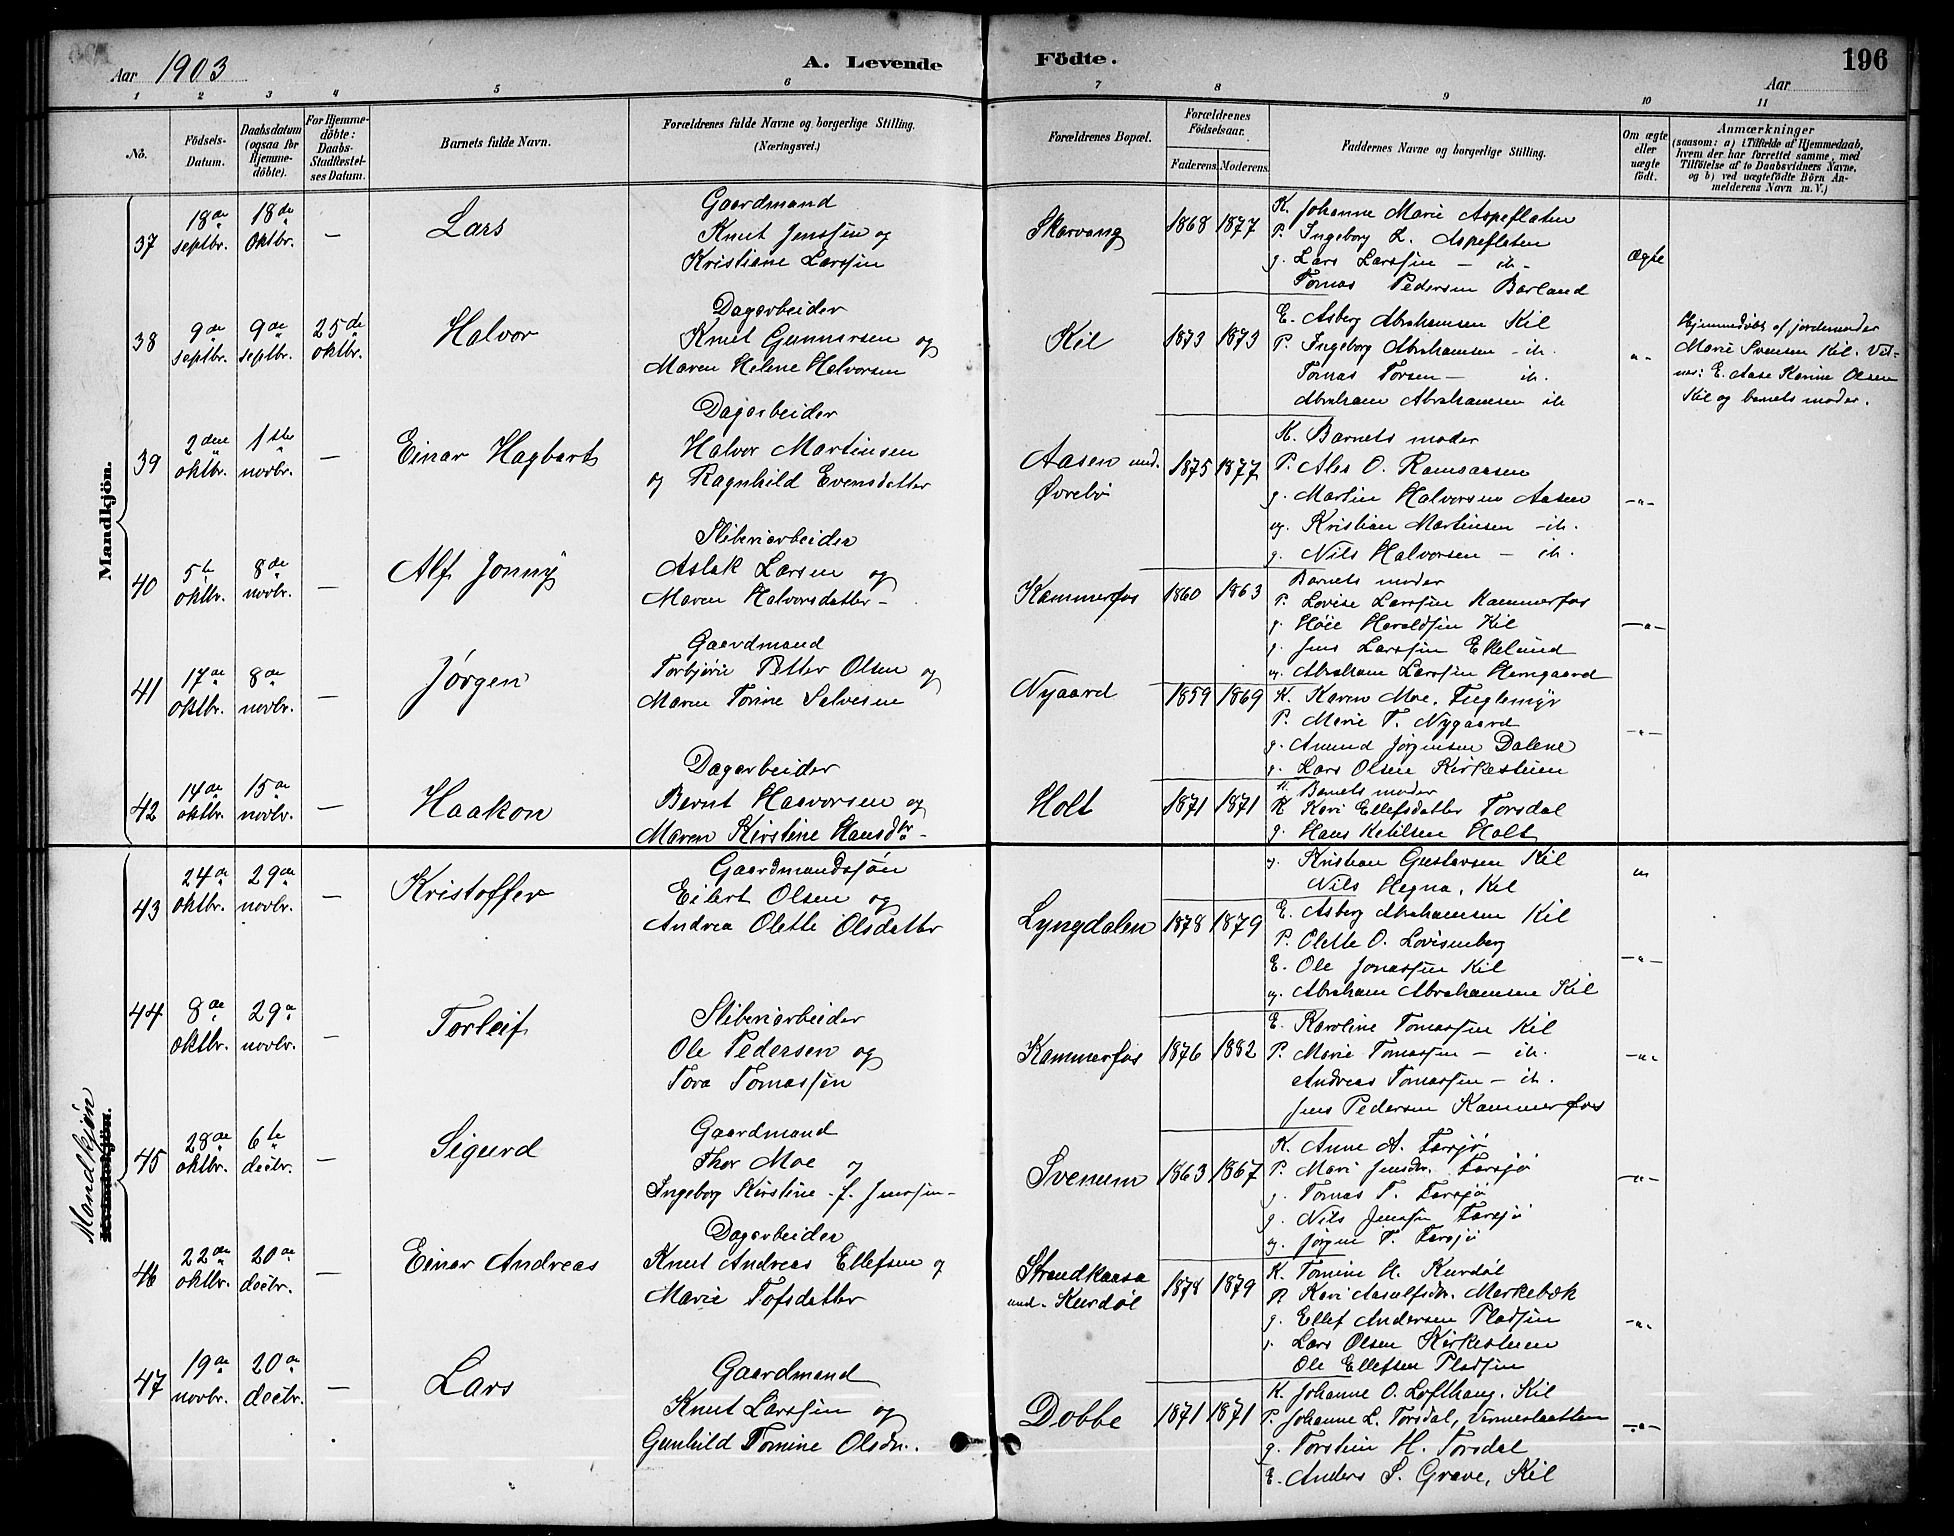 Aar 1903
A. Levende Födte.
196
Aar
1 2 3 4 5 6 7 8 9 10 11
No.
Födsels-Datum.
Daabsdatum (ogsaa for Hjemme-döbte).
For Hjemme-döbte: Daabs-Stadfæstel-ses Datum.
Barnets fulde Navn.
Forældrenes fulde Navne og borgerlige Stilling.
(Næringsvei.)
Forældrenes Bopæl.
Forældrenes Födselsaar.
Faderens. Moderens.
Faddernes Navne og borgerlige Stilling.
Om ægte eller uægte födt.
Anmærkninger
(saasom: a) i Tilfælde af Hjemmedaab, hvem der har forrettet samme, med Tilföielse af to Daabsvidners Navne, og b) ved uægtefödte Börn An-melderens Navn m. V.)
Mandkjön.
37 18de septbr. 18de Oktbr. — Lars
Gaardmand
Knut Jenssen og
Kristiane Larssen
Skarvang 1868 1877
K. Johanne Marie Aspeflaten
P. Ingeborg L. Aspeflaten
g. Lars Larssen — ib -
Tomas Pedersen Barland
Ægte
38 9de septbr. 9de septbr. 25de oktbr. Halvor
Dagarbeider
Knut Gunnarsen og
Maren Helene Halvorsen
Kil 1873 1873
E. Asberg Abrahamsen Kil
P. Ingeborg Abrahamsen - ib.
Tomas Torsen — ib.
Abraham Abrahamsen ib
" "
Hjemmedöbt af jordemoder
Marie Svensen Kil. Vid-
ner: E. Aase Karine Olsen
Kil og barnets moder.
39 2den oktbr. 1ste novbr. — Einar Hagbart
Dagarbeider
Halvor Martinsen
og Ragnhild Evensdatter
Aasen und. Övrebö 1875 1877
K. Barnets moder
P. Ales O. Ramsaasen
g. Martin Halvorsen Aasen
ug. Kristian Martinsen - ib.
g. Nils Halvorsen — ib.
— " —
40 5te oktbr. 8de novbr. — Alf Jonny
Sliberiarbeider
Aslak Larsen og
Maren Halvorsdatter -
Kammerfos 1860 1863
Barnets moder
P. Lovise Larssen Kammerfos
g. Höie Haraldsen Kil
g. Jens Larssen Ekelund
ug. Abraham Larssen Hemgaard
— " —
41 17de oktbr. 8de novbr. — Jørgen
Gaardmand
Torbjörn Petter Olsen og
Maren Tomine Salvesen
Nygaard 1859 1869
K. Karen Moe, Fuglemyr
P. Marie T. Nygaard
g. Amund Jørgensen Dalene
g. Lars Olsen Kirkestuen
— " —
42 14de oktbr. 15de novbr. — Haakon
Dagarbeider
Bernt Haavorsen og
Maren Kirstine Hansdtr -
Holt 1871 1871
K. Barnets moder
K Kari Ellefsdatter Torsdal
g. Hans Ketilsen Holt
ug. Kristian Gustavsen Kil
Nils Hegna, Kil
"
Mandkjön
Kvindekjön.
43 24de oktbr. 29de novbr. — Kristoffer
Gaardmandssön
Eilert Olsen og
Andrea Olette Olsdatter
Lyngdalen 1878 1879
E. Asberg Abrahamsen Kil
P. Olette O. Lovisenberg
E. Ole Jonassen Kil
ug. Abraham Abrahamsen Kil
— " —
44 8de oktbr. 29de novbr. — Torleif
Sliberiarbeider
Ole Pedersen og
Tora Tomassen
Kammerfos 1876 1882
E. Karoline Tomassen Kil
P. Marie Tomassen — ib.
Andreas Tomassen — ib.
Jens Pedersen Kammerfos
— " —
45 28de oktbr. 6te decbr. — Sigurd
Gaardmand
Thor Moe og
Ingeborg Kirstine f. Jenssen -
Svenum 1863 1867
K. Anne A. Farsjø
P. Mari Jensdtr. Farsjø
g. Tomas T. Farsjø
g. Nils Jenssen Farsjø
ug. Jørgen T. Farsjø
— " —
46 22de oktbr. 20de decbr. — Einar Andreas
Dagarbeider
Knut Andreas Ellefsen og
Marie Tofsdatter
Strandkaasa und. Kurdöl 1878 1879
K. Tomine H. Kurdöl
P. Kari Aasulfsdtr. Markebæk
g. Ellef Andersen Pladsen
g. Lars Olsen Kirkestuen
Ole Ellefsen Pladsen
— " —
47 19de novbr. 20de decbr. — Lars
Gaardmand
Knut Larssen og
Gunhild Tomine Olsdtr.
Dobbe 1871 1871
K. Johanne O. Lofthaug, Kil
P. Johanne L. Torsdal,
g. Torstein H. Torsdal
E. Anders S. Grave, Kil
— " —